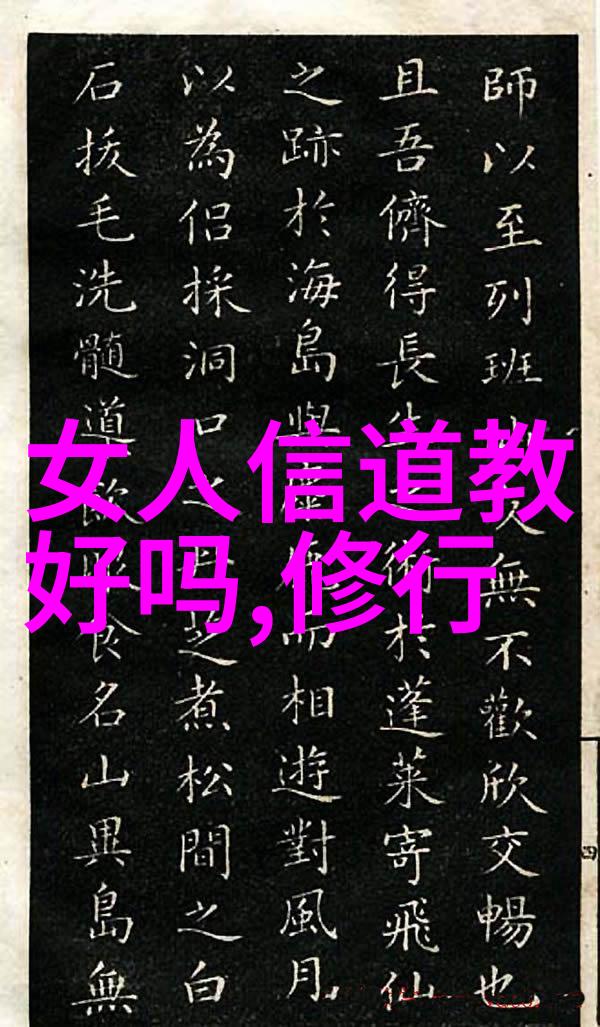 師以至列班無不歡欣交暢也
且吾儕得長生之術於蓬萊寄飛仙
之跡於海島與而相遊對風月
以為侶採洞口之芝煮松間之白
石拔毛洗髓道食名山異島無
女人信道教
好吗,修行
四